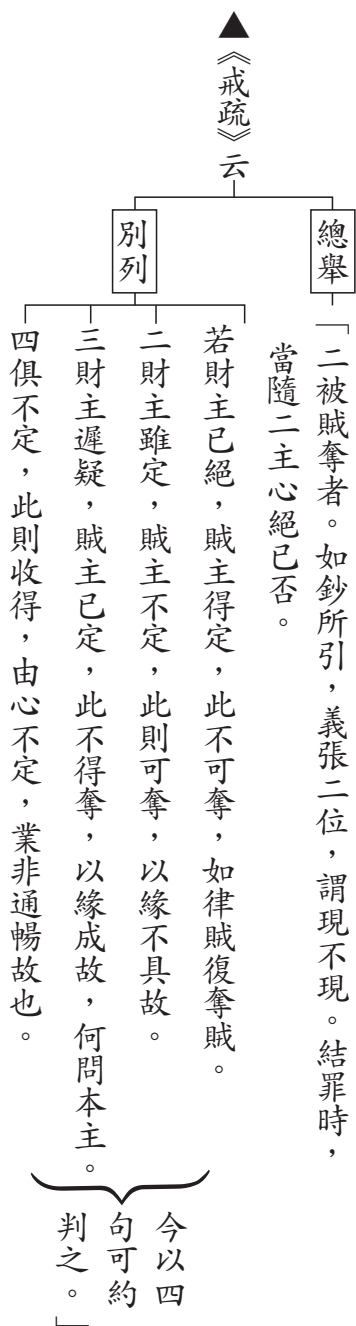 ▲《戒疏》云
總舉
「二被賊奪者。如鈔所引，義張二位，謂現不現。結罪時，
當隨二主心絕已否。
別列
若財主已絕，賊主得定，此不可奪，如律賊復奪賊。
二財主雖定，賊主不定，此則可奪，以緣不具故。
三財主遲疑，賊主已定，此不得奪，以緣成故，何問本主。
四俱不定，此則收得，由心不定，業非通暢故也。
今以四
句可約
判之。」